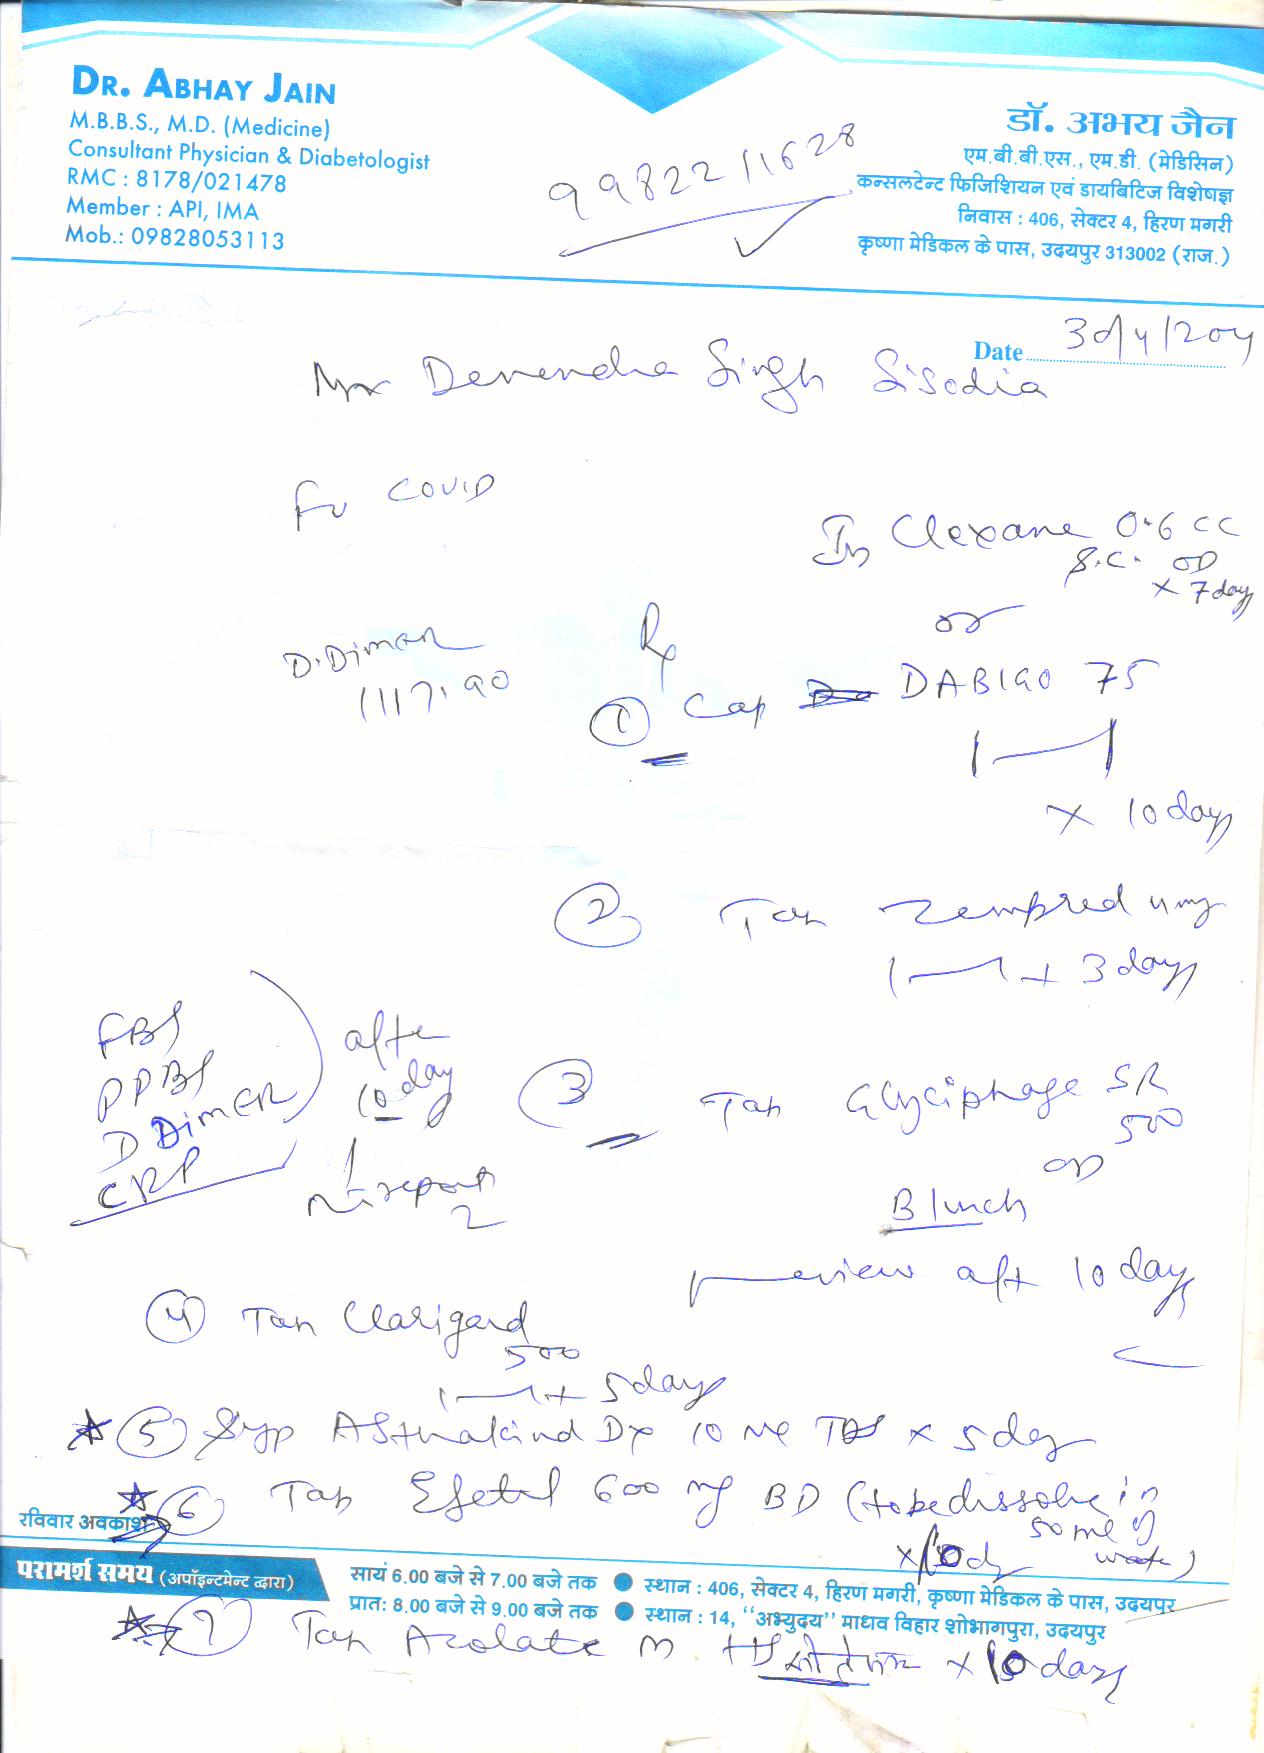 DR. ABHAY JAIN
M.B.B.S., M.D. (Medicine)
Consultant Physician & Diabetologist
RMC : 8178/021478
Member : API, IMA
Mob.: 09828053113
9982211628
डॉ. अभय जैन
एम.बी.बी.एस., एम.डी. (मेडिसिन)
कन्सलटेन्ट फिजिशियन एवं डायबिटिज विशेषज्ञ
निवास : 406, सेक्टर 4, हिरण मगरी
कृष्णा मेडिकल के पास, उदयपुर 313002 (राज.)
Date
Mr Devendra Singh Sisodia
Fu COVID
Inj Clexane 0.6 cc
S.C. OD
x 7 days
or
D.Dimer
1117.90
Rx
1 Cap DABIGO 75
1—1
x 10 days
2 Tab Zempred 4mg
1—1 + 3 days
FBS
PPBS
D Dimer
CRP
after
10 day
report
3 Tab Glyciphage SR
500
OD
B lunch
review aft 10 days
4 Tab Clarigard
500
1—1 + 5 days
5 Syp Asthakind Dx 10 ml TDS x 5 day
6 Tab 600 mg BD (to be dissolve in
50 ml of
water)
x 10 d
रविवार अवकाश
परामर्श समय (अपॉइन्टमेन्ट द्वारा)
सायं 6.00 बजे से 7.00 बजे तक ● स्थान : 406, सेक्टर 4, हिरण मगरी, कृष्णा मेडिकल के पास, उदयपुर
प्रात: 8.00 बजे से 9.00 बजे तक ● स्थान : 14, "अभ्युदय" माधव विहार शोभागपुरा, उदयपुर
7 Tab Azolate M HS सोते समय x 10 days